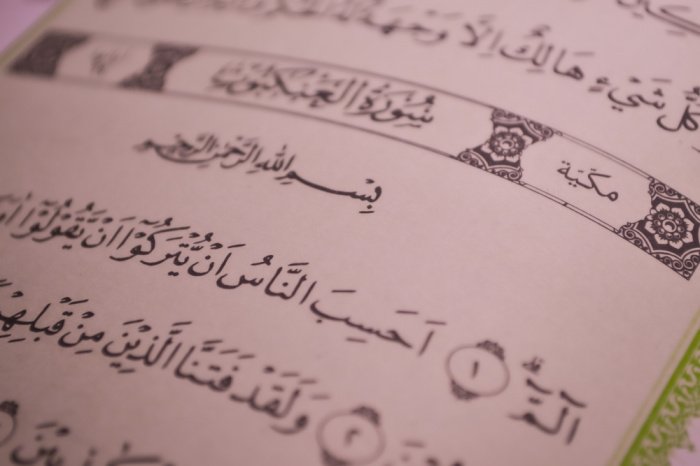 كُلُّ شَيْءٍ هَالِكٌ اِلَّا وَجْهَهٗ
مكيّة سُوْرَةُ الْعَنْكَبُوْتِ
بِسْمِ اللهِ الرَّحْمٰنِ الرَّحِيْمِ
الٓمّٓ ۚ ١ اَحَسِبَ النَّاسُ اَنْ يُّتْرَكُوْٓا اَنْ يَّقُوْلُوْٓا
٢ وَلَقَدْ فَتَنَّا الَّذِيْنَ مِنْ قَبْلِهِمْ